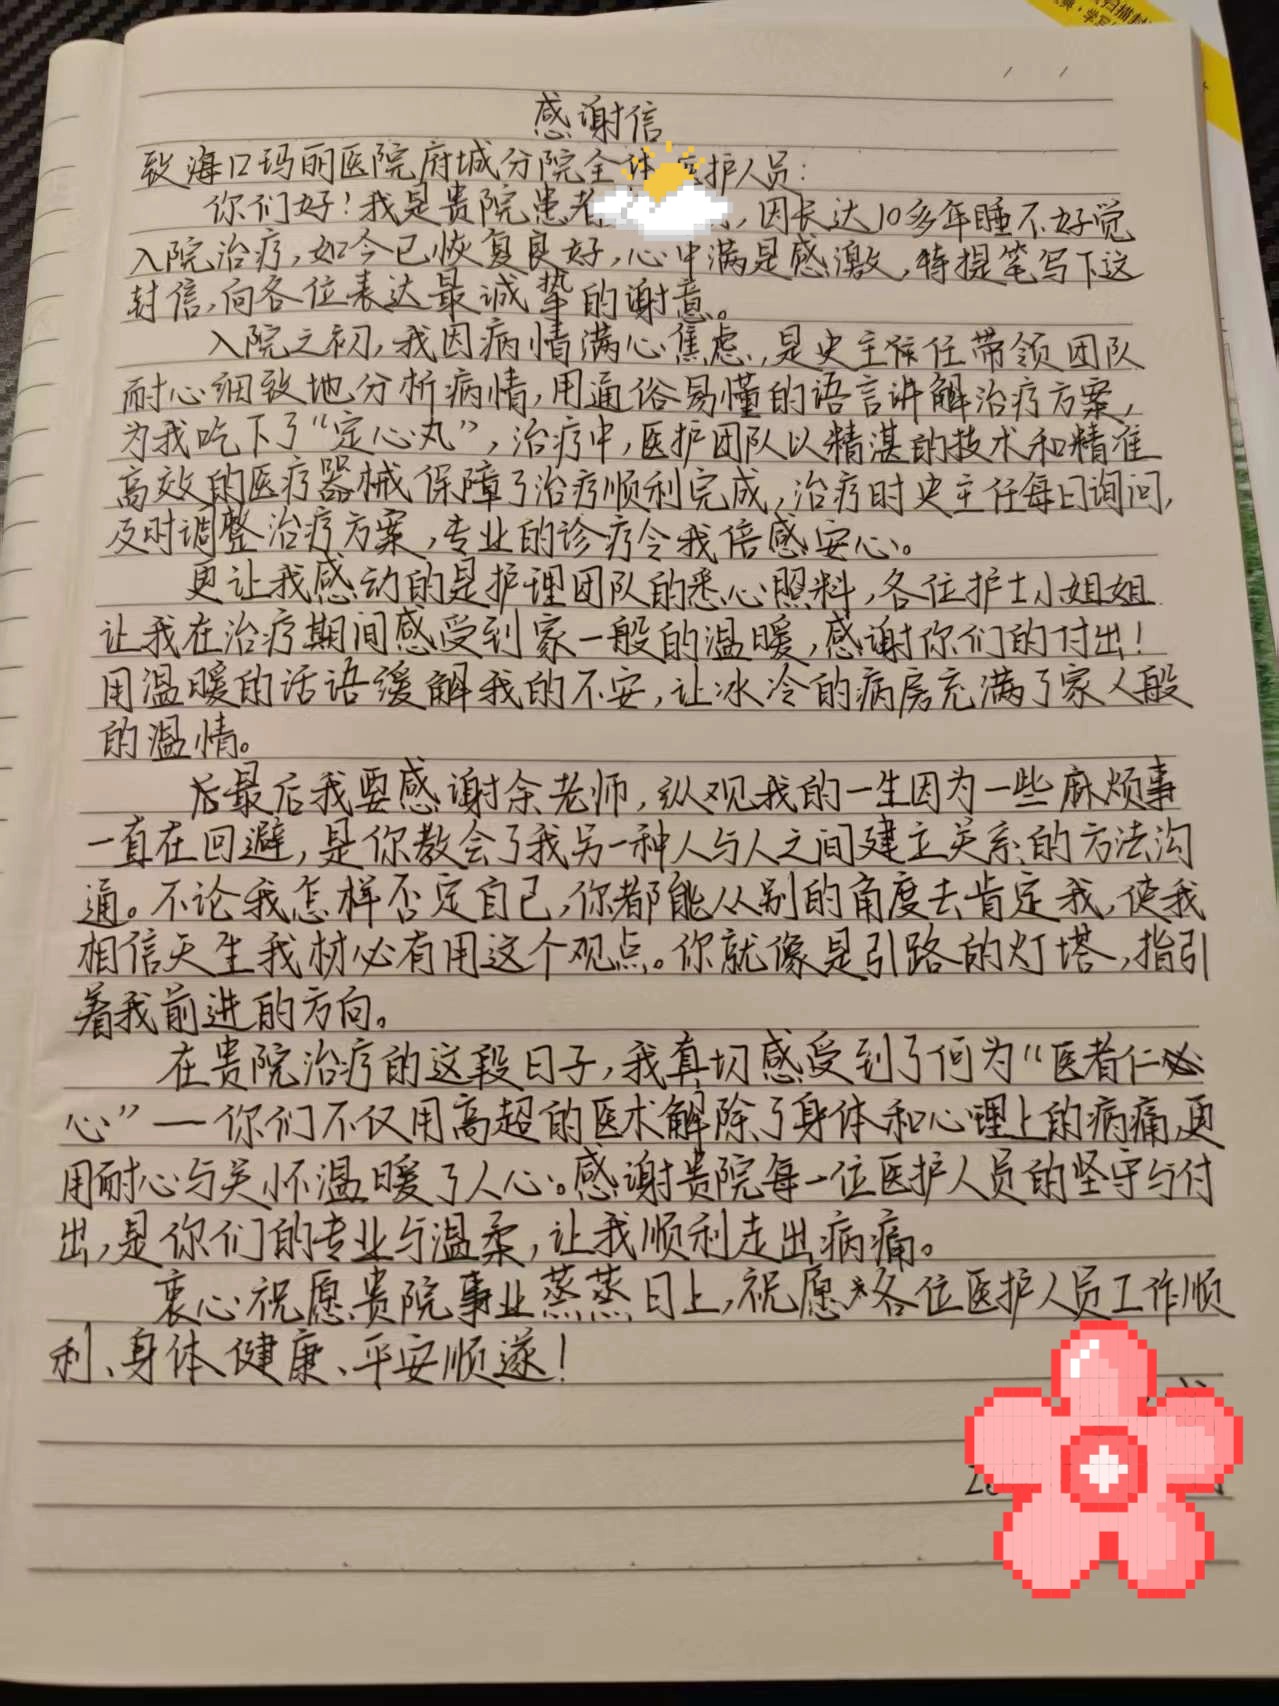 感谢信
致海口玛丽医院府城分院全体医护人员:
你们好!我是贵院患者,因长达10多年睡不好觉
入院治疗,如今已恢复良好,心中满是感激,特提笔写下这
封信,向各位表达最诚挚的谢意。
入院之初,我因病情满心焦虑,是史主任带领团队
耐心细致地分析病情,用通俗易懂的语言讲解治疗方案,
为我吃下了“定心丸”,治疗中,医护团队以精湛的技术和精准
高效的医疗器械保障了治疗顺利完成,治疗时史主任每日询问,
及时调整治疗方案,专业的诊疗令我倍感安心。
更让我感动的是护理团队的悉心照料,各位护士小姐姐
让我在治疗期间感受到家一般的温暖,感谢你们的付出!
用温暖的话语缓解我的不安,让冰冷的病房充满了家人般
的温情。
最后我要感谢余老师,纵观我的一生因为一些麻烦事
一直在回避,是你教会了我另一种人与人之间建立关系的方法沟
通。不论我怎样否定自己,你都能从别的角度去肯定我,使我
相信天生我材必有用这个观点。你就像是引路的灯塔,指引
着我前进的方向。
在贵院治疗的这段日子,我真切感受到了何为“医者仁
心”—你们不仅用高超的医术解除了身体和心理上的病痛,更
用耐心与关怀温暖了人心。感谢贵院每一位医护人员的坚守与付
出,是你们的专业与温柔,让我顺利走出病痛。
衷心祝愿贵院事业蒸蒸日上,祝愿各位医护人员工作顺
利、身体健康、平安顺遂!